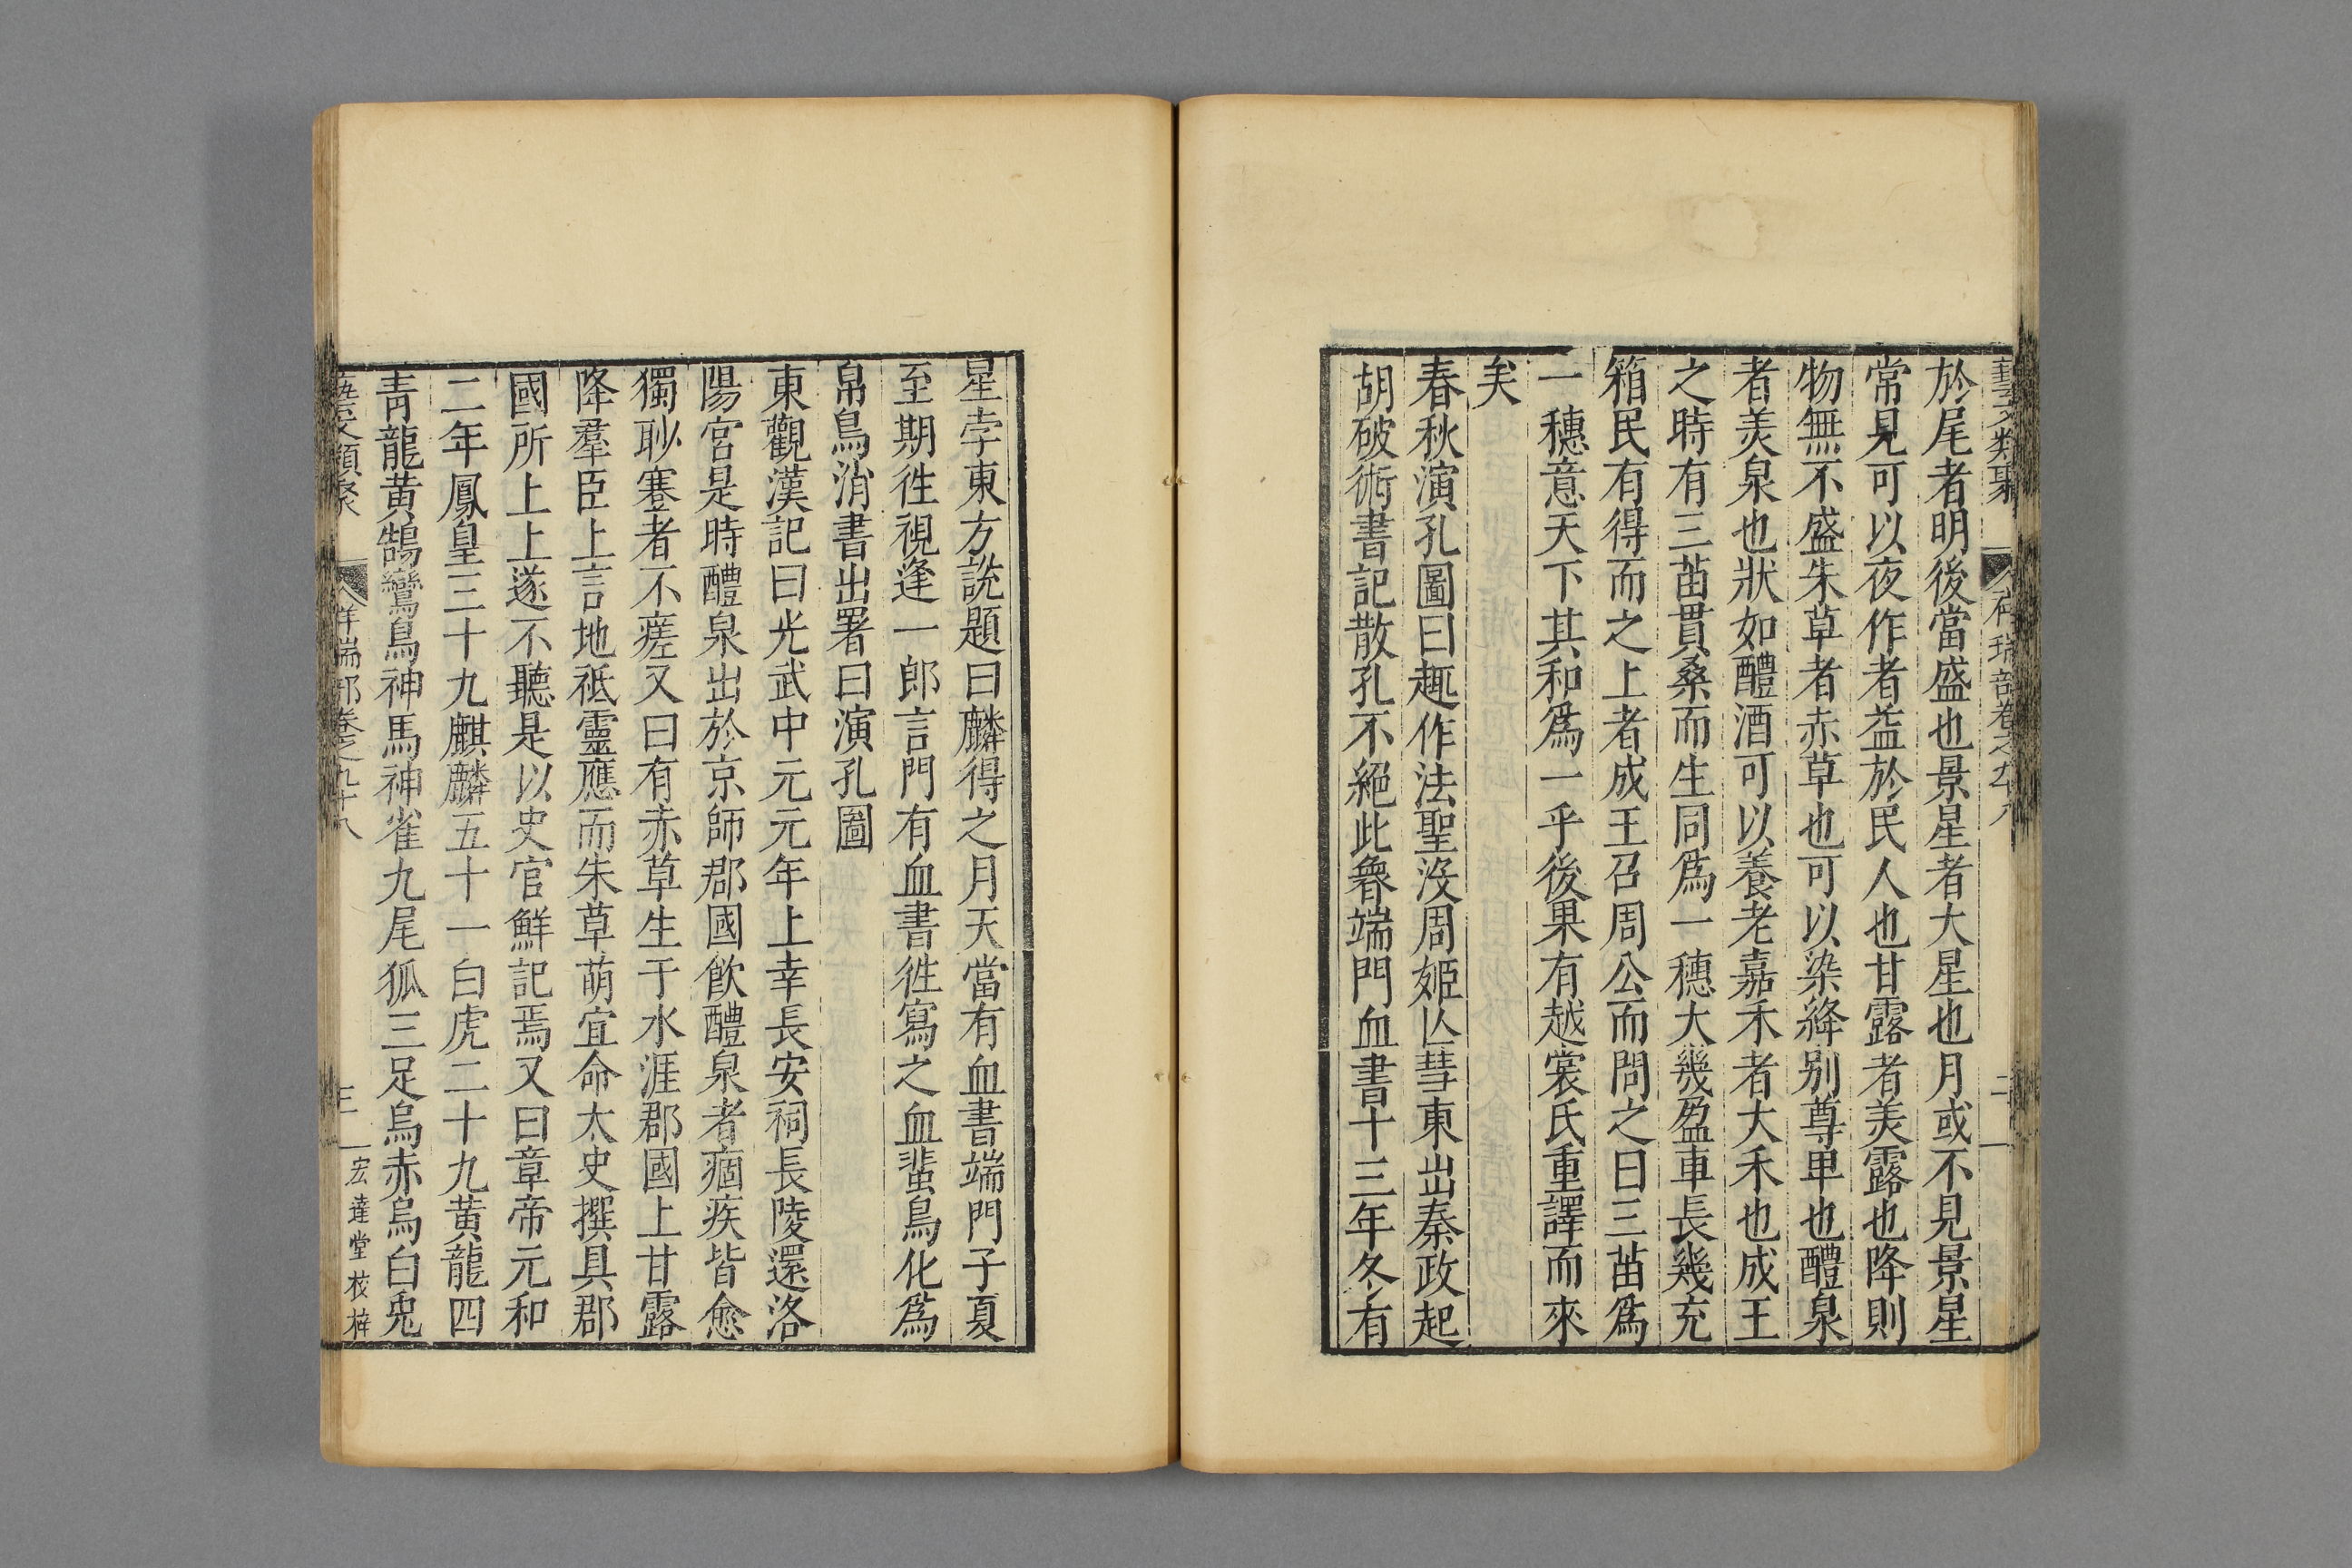 藝文類聚 祥瑞部卷之九十八 二
於尾者明後當盛也景星者大星也月或不見景星
常見可以夜作者益於民人也甘露者美露也降則
物無不盛朱草者赤草也可以染絳别尊卑也醴泉
者美泉也狀如醴酒可以養老嘉禾者大禾也成王
之時有三苗貫桑而生同爲一穗大幾盈車長幾充
箱民有得而之上者成王召周公而問之曰三苗爲
一穗意天下其和爲一乎後果有越裳氏重譯而來
矣
春秋演孔圖曰趣作法聖没周姬亾彗東出秦政起
胡破術書記散孔不絕此魯端門血書十三年冬有
星孛東方說題曰麟得之月天當有血書端門子夏
至期徃視逢一郎言門有血書徃寫之血蜚鳥化爲
帛鳥消書出署曰演孔圖
東觀漢記曰光武中元元年上幸長安祠長陵還洛
陽宮是時醴泉出於京師郡國飲醴泉者痼疾皆愈
獨眇蹇者不瘥又曰有赤草生于水涯郡國上甘露
降羣臣上言地祗靈應而朱草萌宜命太史撰具郡
國所上上遂不聽是以史官鮮記焉又曰章帝元和
二年鳳皇三十九麒麟五十一白虎二十九黄龍四
青龍黄鵠鸞鳥神馬神雀九尾狐三足烏赤烏白兎
藝文類聚 祥瑞部卷之九十八 三 宏達堂校梓